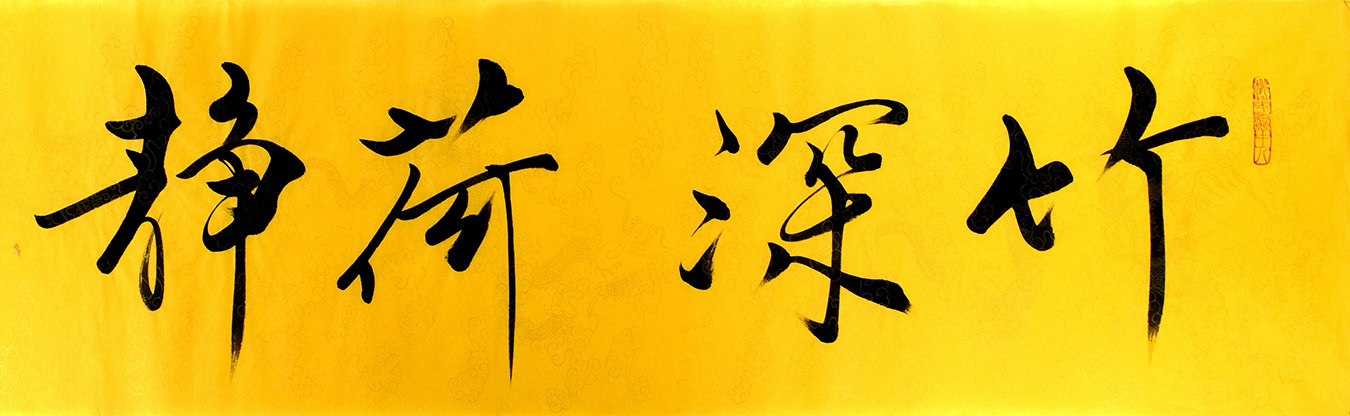 竹深荷静